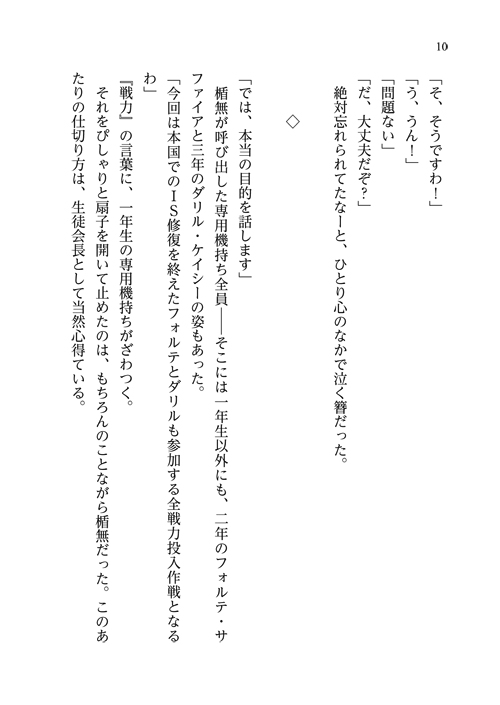 10
「そ、そうですわ!」
「う、うん!」
「問題ない」
「だ、大丈夫だぞ?」
　絶対忘れられてたなーと、ひとり心のなかで泣く簪だった。
◇
「では、本当の目的を話します」
　楯無が呼び出した専用機持ち全員――そこには一年生以外にも、二年のフォルテ・サ
ファイアと三年のダリル・ケイシーの姿もあった。
「今回は本国でのIS修復を終えたフォルテとダリルも参加する全戦力投入作戦となる
わ」
『戦力』の言葉に、一年生の専用機持ちがざわつく。
　それをぴしゃりと扇子を開いて止めたのは、もちろんのことながら楯無だった。このあ
たりの仕切り方は、生徒会長として当然心得ている。